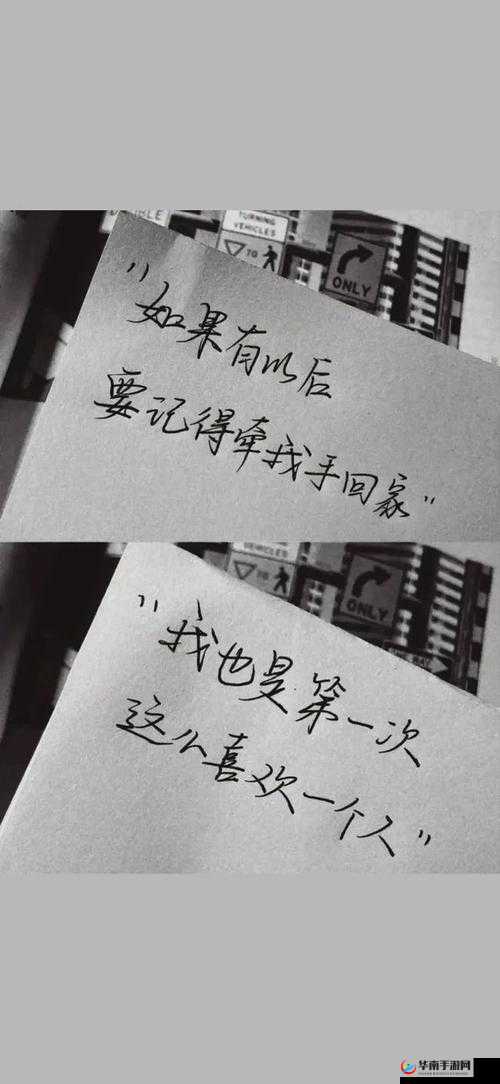 TURNING
VEHICLES
TO
ONLY
"如果有以后
要记得牵我手回家"
VEHICLES
ONLY
"我也是第一次
这么喜欢一个人"
华南手游网